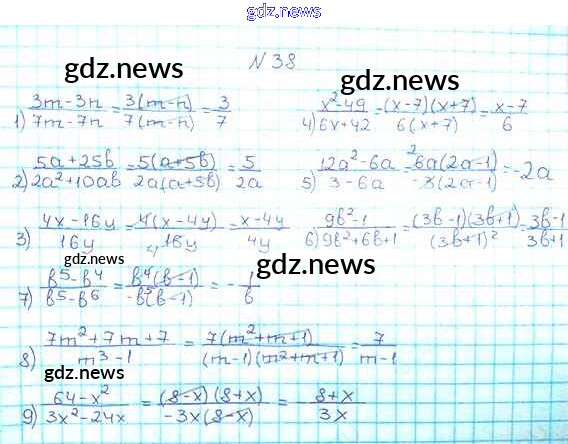 gdz.news
№ 38
gdz.news
gdz.news
1) (3m-3n)/(7m-7n) = 3(m-n)/7(m-n) = 3/7
4) (x²-49)/(6x+42) = (x-7)(x+7)/6(x+7) = (x-7)/6
2) (5a+25b)/(2a²+10ab) = 5(a+5b)/2a(a+5b) = 5/2a
5) (12a²-6a)/(3-6a) = ²6a(2a-1)/-3(2a-1) = -2a
3) (4x-16y)/16y = 4(x-4y)/₄16y = (x-4y)/4y
6) (9b²-1)/(9b²+6b+1) = (3b-1)(3b+1)/(3b+1)² = (3b-1)/(3b+1)
gdz.news
gdz.news
7) (b⁵-b⁴)/(b⁵-b⁶) = b⁴(b-1)/-b⁵(b-1) = -1/b
8) (7m²+7m+7)/(m³-1) = 7(m²+m+1)/(m-1)(m²+m+1) = 7/(m-1)
gdz.news
gdz.news
9) (64-x²)/(3x²-24x) = (8-x)(8+x)/-3x(8-x) = -(8+x)/3x